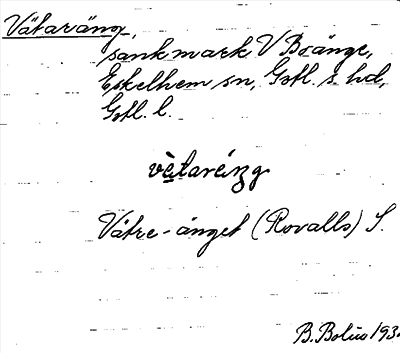 Vätaräng,
sank mark V Bränge,
Eskelhem sn, Gotl. s. hd,
Gotl. l.
vètaréng
Vätre-änget (Rovalls) S.
B. Bolin 193